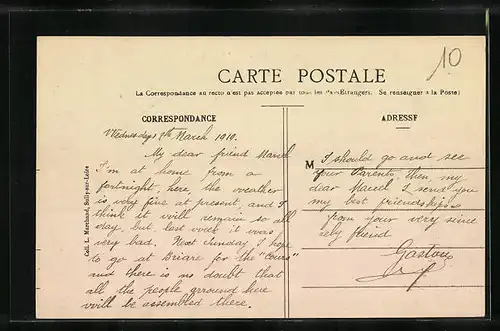 10
CARTE POSTALE
La Correspondance au recto n'est pas acceptée par tous les Pays Etrangers. Se renseigner à la Poste)
CORRESPONDANCE
ADRESSE
Wednesday 9th March 1910.
My dear friend Marcel
I'm at home from a
fortnight, here, the weather
is very fine at present, and I
think it will remain so all
day, but last week it was
very bad. Next Sunday I hope
to go at Briare for the "Cours"
and there is no doubt that
all the people arround here
will be assembled there.
M I should go and see
your Parents, then my
dear Marcel I send you
my best friendships
from your very since
rely friend
Gaston
Coll. L. Marchand, Sully-sur-Loire